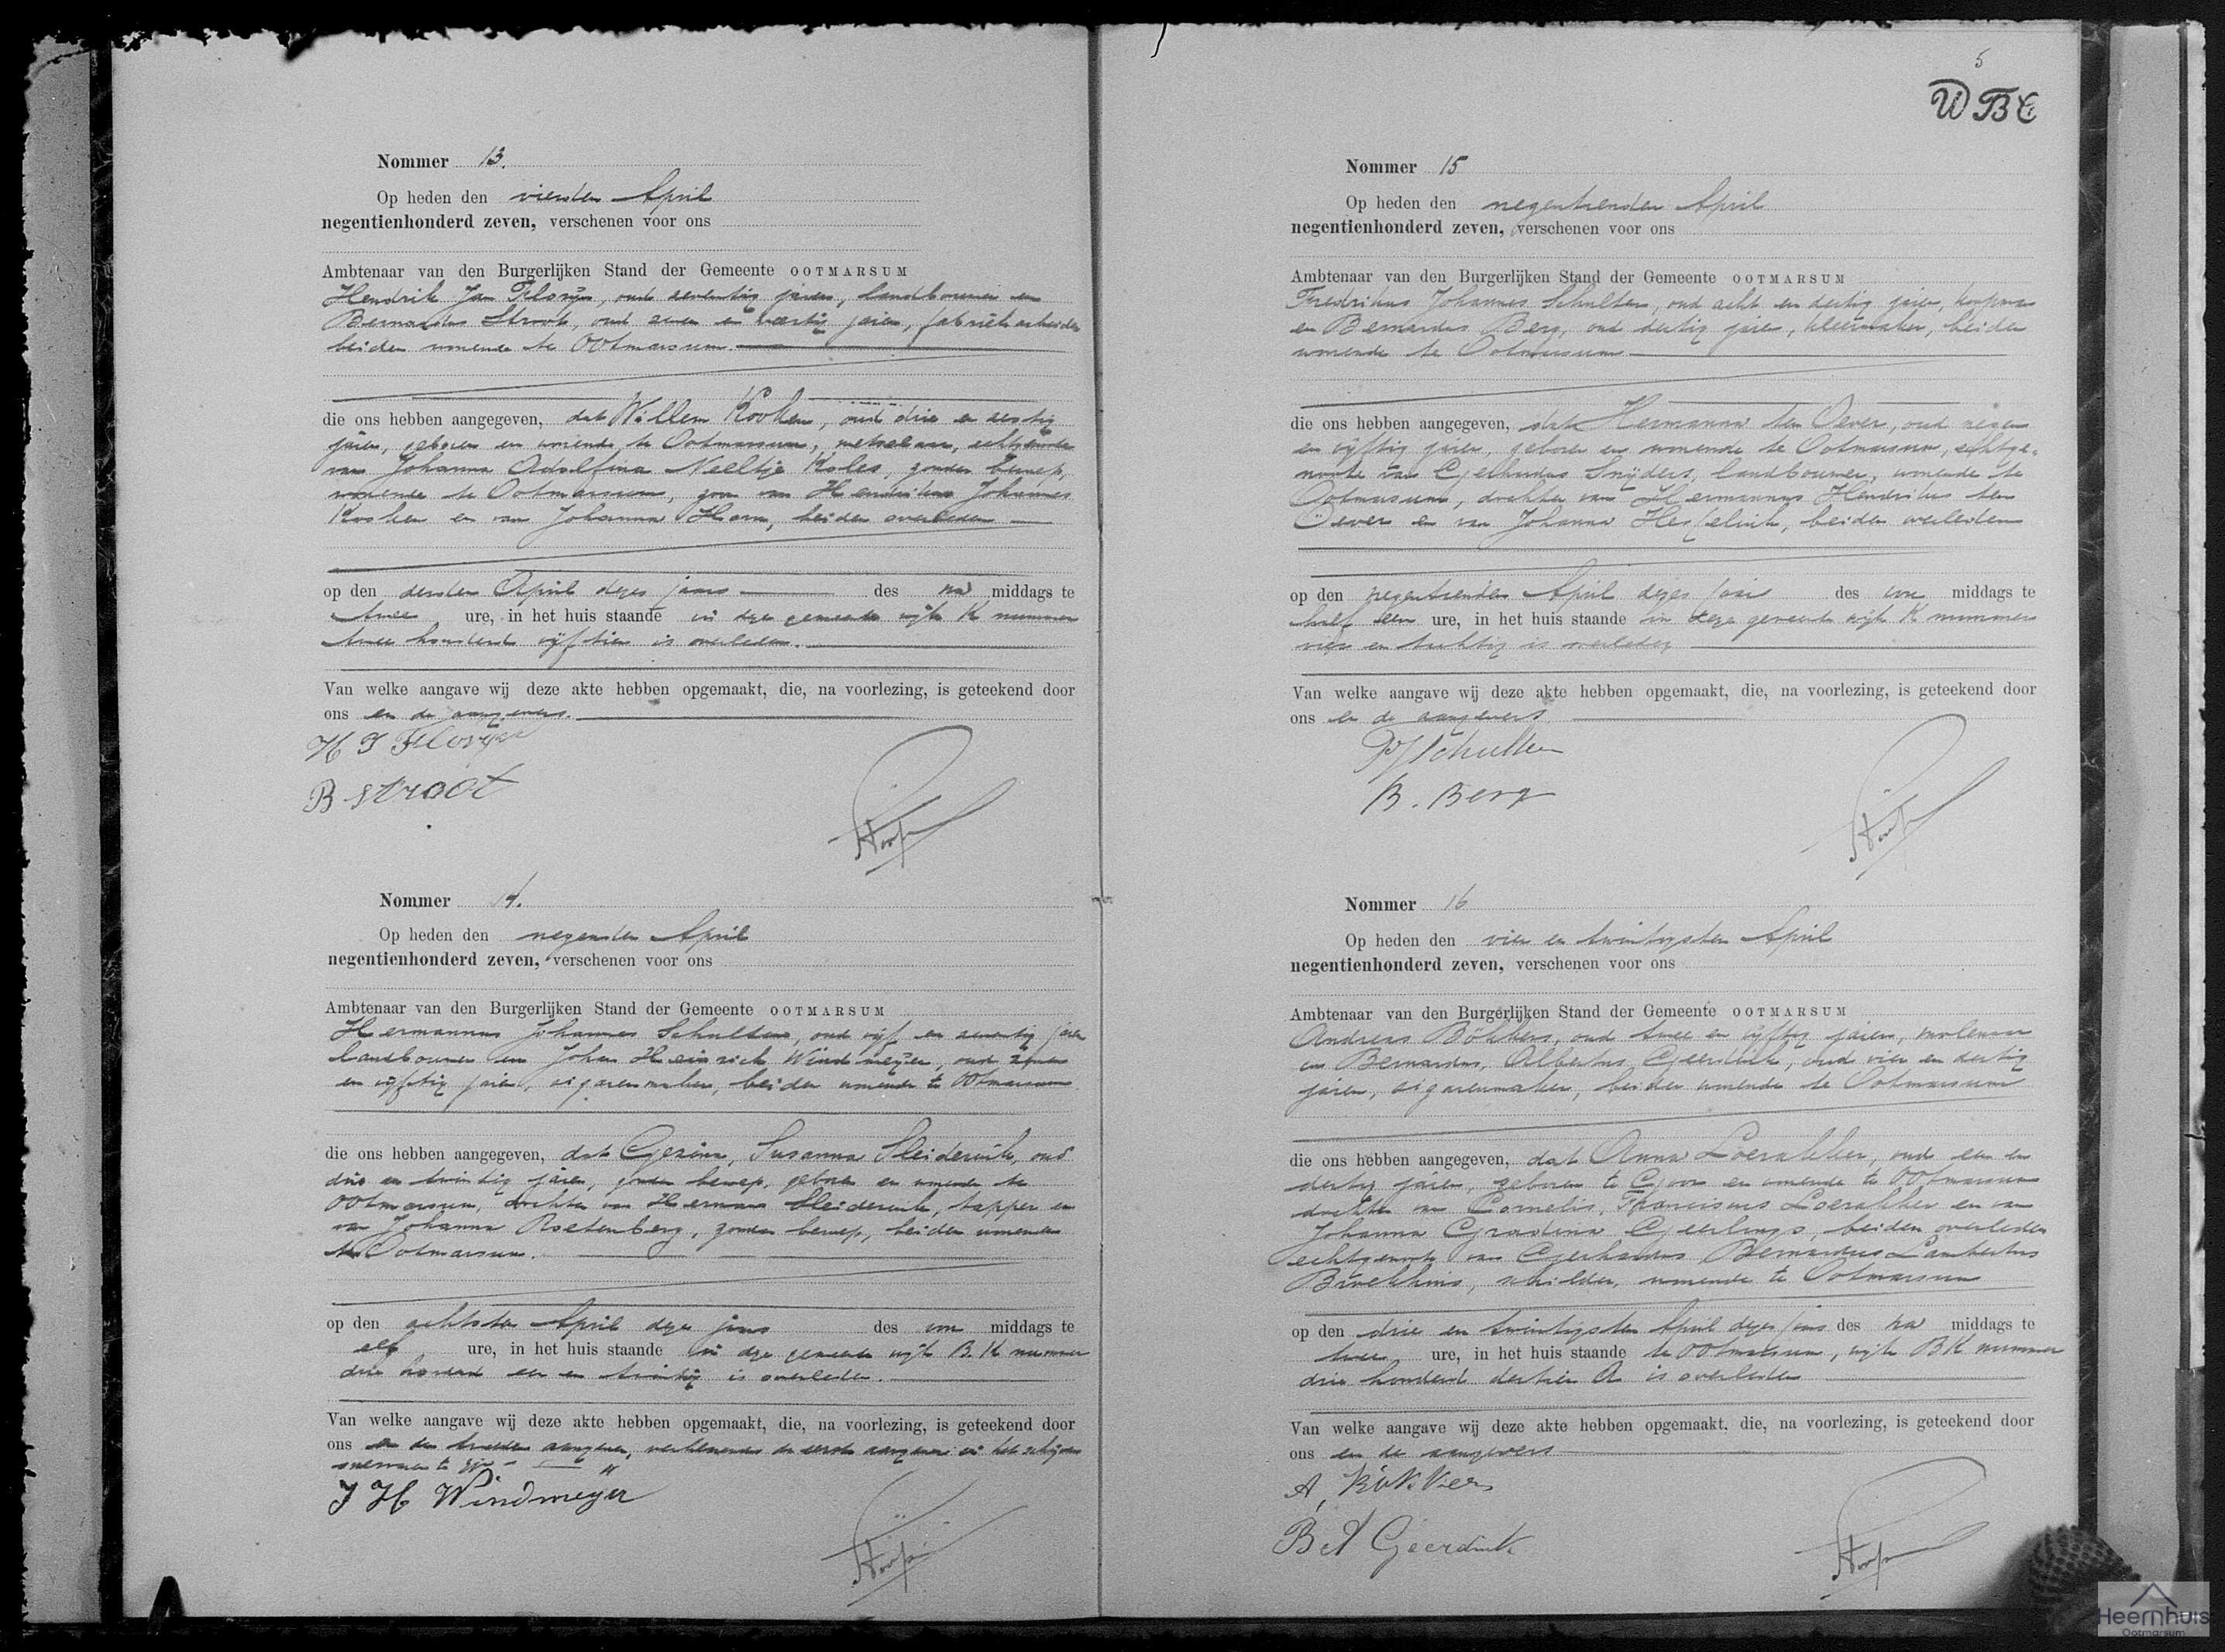 Nommer 13.
Op heden den vierden April
negentienhonderd zeven, verschenen voor ons
Ambtenaar van den Burgerlijken Stand der Gemeente OOTMARSUM
Hendrik Jan Florijn, oud zeventig jaren, landbouwer en
Bernardus Stroot, oud zeven en veertig jaren, fabriekarbeider
beiden wonende te Ootmarsum.
die ons hebben aangegeven, dat Willem Kooken, oud drie en zestig
jaren, geboren en wonende te Ootmarsum, metselaar, echtgenoot
van Johanna Adolfina Neeltje Koles, zonder beroep,
wonende te Ootmarsum, zoon van Hendrikus Johannes
Kooken en van Johanna Horn, beiden overleden
op den derden April dezes jaars des na middags te
twee ure, in het huis staande in deze gemeente wijk K nummer
twee honderd vijftien is overleden.
Van welke aangave wij deze akte hebben opgemaakt, die, na voorlezing, is geteekend door
ons en de aangevers.
H J Florijn
B Stroot
Nommer 14.
Op heden den negenden April
negentienhonderd zeven, verschenen voor ons
Ambtenaar van den Burgerlijken Stand der Gemeente OOTMARSUM
Hermannus Johannes Schulten, oud vijf en zeventig jaren
landbouwer en Johan Heinrich Windmeijer, oud zeven
en vijftig jaren, sigarenmaker, beiden wonende te Ootmarsum
die ons hebben aangegeven, dat Gezina Susanna Sleiderink, oud
drie en twintig jaren, zonder beroep, geboren en wonende te
Ootmarsum, dochter van Herman Sleiderink, tapper en
van Johanna Rostenberg, zonder beroep, beiden wonende
te Ootmarsum.
op den achtsten April dezes jaars des voor middags te
elf ure, in het huis staande in deze gemeente wijk B.K nummer
drie honderd een en twintig is overleden.
Van welke aangave wij deze akte hebben opgemaakt, die, na voorlezing, is geteekend door
ons en den tweeden aangever, verklarende de eerste aangever in het schrijven
onervaren te zijn
J H Windmeijer
5
WBE
Nommer 15
Op heden den negentienden April
negentienhonderd zeven, verschenen voor ons
Ambtenaar van den Burgerlijken Stand der Gemeente OOTMARSUM
Fredrikus Johannes Schulten, oud acht en dertig jaren, koopman
en Bernardus Berg, oud dertig jaren, kleermaker, beiden
wonende te Ootmarsum
die ons hebben aangegeven, dat Hermanna ten Oever, oud negen
en vijftig jaren, geboren en wonende te Ootmarsum, echtge-
noote van Gerhardus Snijders, landbouwer, wonende te
Ootmarsum, dochter van Hermannus Hendrikus ten
Oever en van Johanna Hesselink, beiden overleden
op den negentienden April dezes jaars des voor middags te
half een ure, in het huis staande in deze gemeente wijk K nummer
vier en tachtig is overleden
Van welke aangave wij deze akte hebben opgemaakt, die, na voorlezing, is geteekend door
ons en de aangevers
FJ Schulten
B. Berg
Nommer 16
Op heden den vier en twintigsten April
negentienhonderd zeven, verschenen voor ons
Ambtenaar van den Burgerlijken Stand der Gemeente OOTMARSUM
Andreas Bökkers, oud twee en vijftig jaren, molenaar
en Bernardus Albertus Geerdink, oud vier en dertig
jaren, sigarenmaker, beiden wonende te Ootmarsum
die ons hebben aangegeven, dat Anna Loerakker, oud een en
dertig jaren, geboren te Goor en wonende te Ootmarsum
dochter van Cornelis Franciscus Loerakker en van
Johanna Gradina Geerlings, beiden overleden
echtgenoote van Gerhardus Bernardus Lambertus
Broekhuis, schilder, wonende te Ootmarsum
op den drie en twintigsten April dezes jaars des na middags te
twee ure, in het huis staande te Ootmarsum, wijk BK nummer
drie honderd dertien A is overleden
Van welke aangave wij deze akte hebben opgemaakt, die, na voorlezing, is geteekend door
ons en de aangevers
A, Bökkers
B A Geerdink
Heernhuis
Ootmarsum